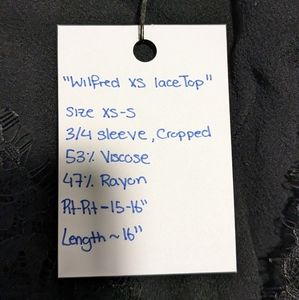 "Wilfred xs lace Top"
Size XS-S
3/4 sleeve, Cropped
53% Viscose
47% Rayon
Pit-Pit-15-16"
Length ~ 16"